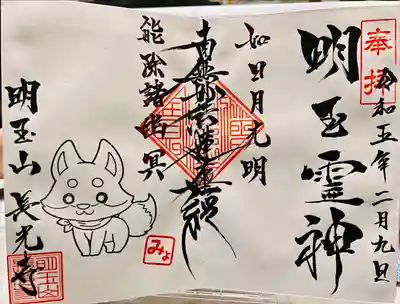 奉拝
令和五年二月九日
明玉霊神
如日月光明
南無妙法蓮華経
能除諸幽冥
明玉山 長光寺
みょ